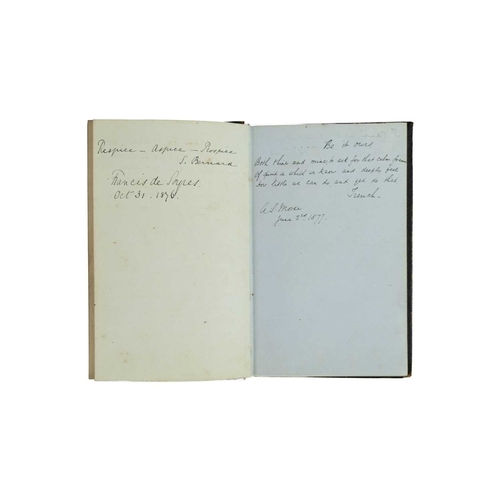 Respice — Aspice — Prospice
S. Bernard
Francis de Soyres.
Oct 31. 1876.
Be it ours
Both thine and mine to ask for this calm frame
Of mind in which we know and deeply feel
How little we can do and yet do this
Trench.
June 2nd 1877.